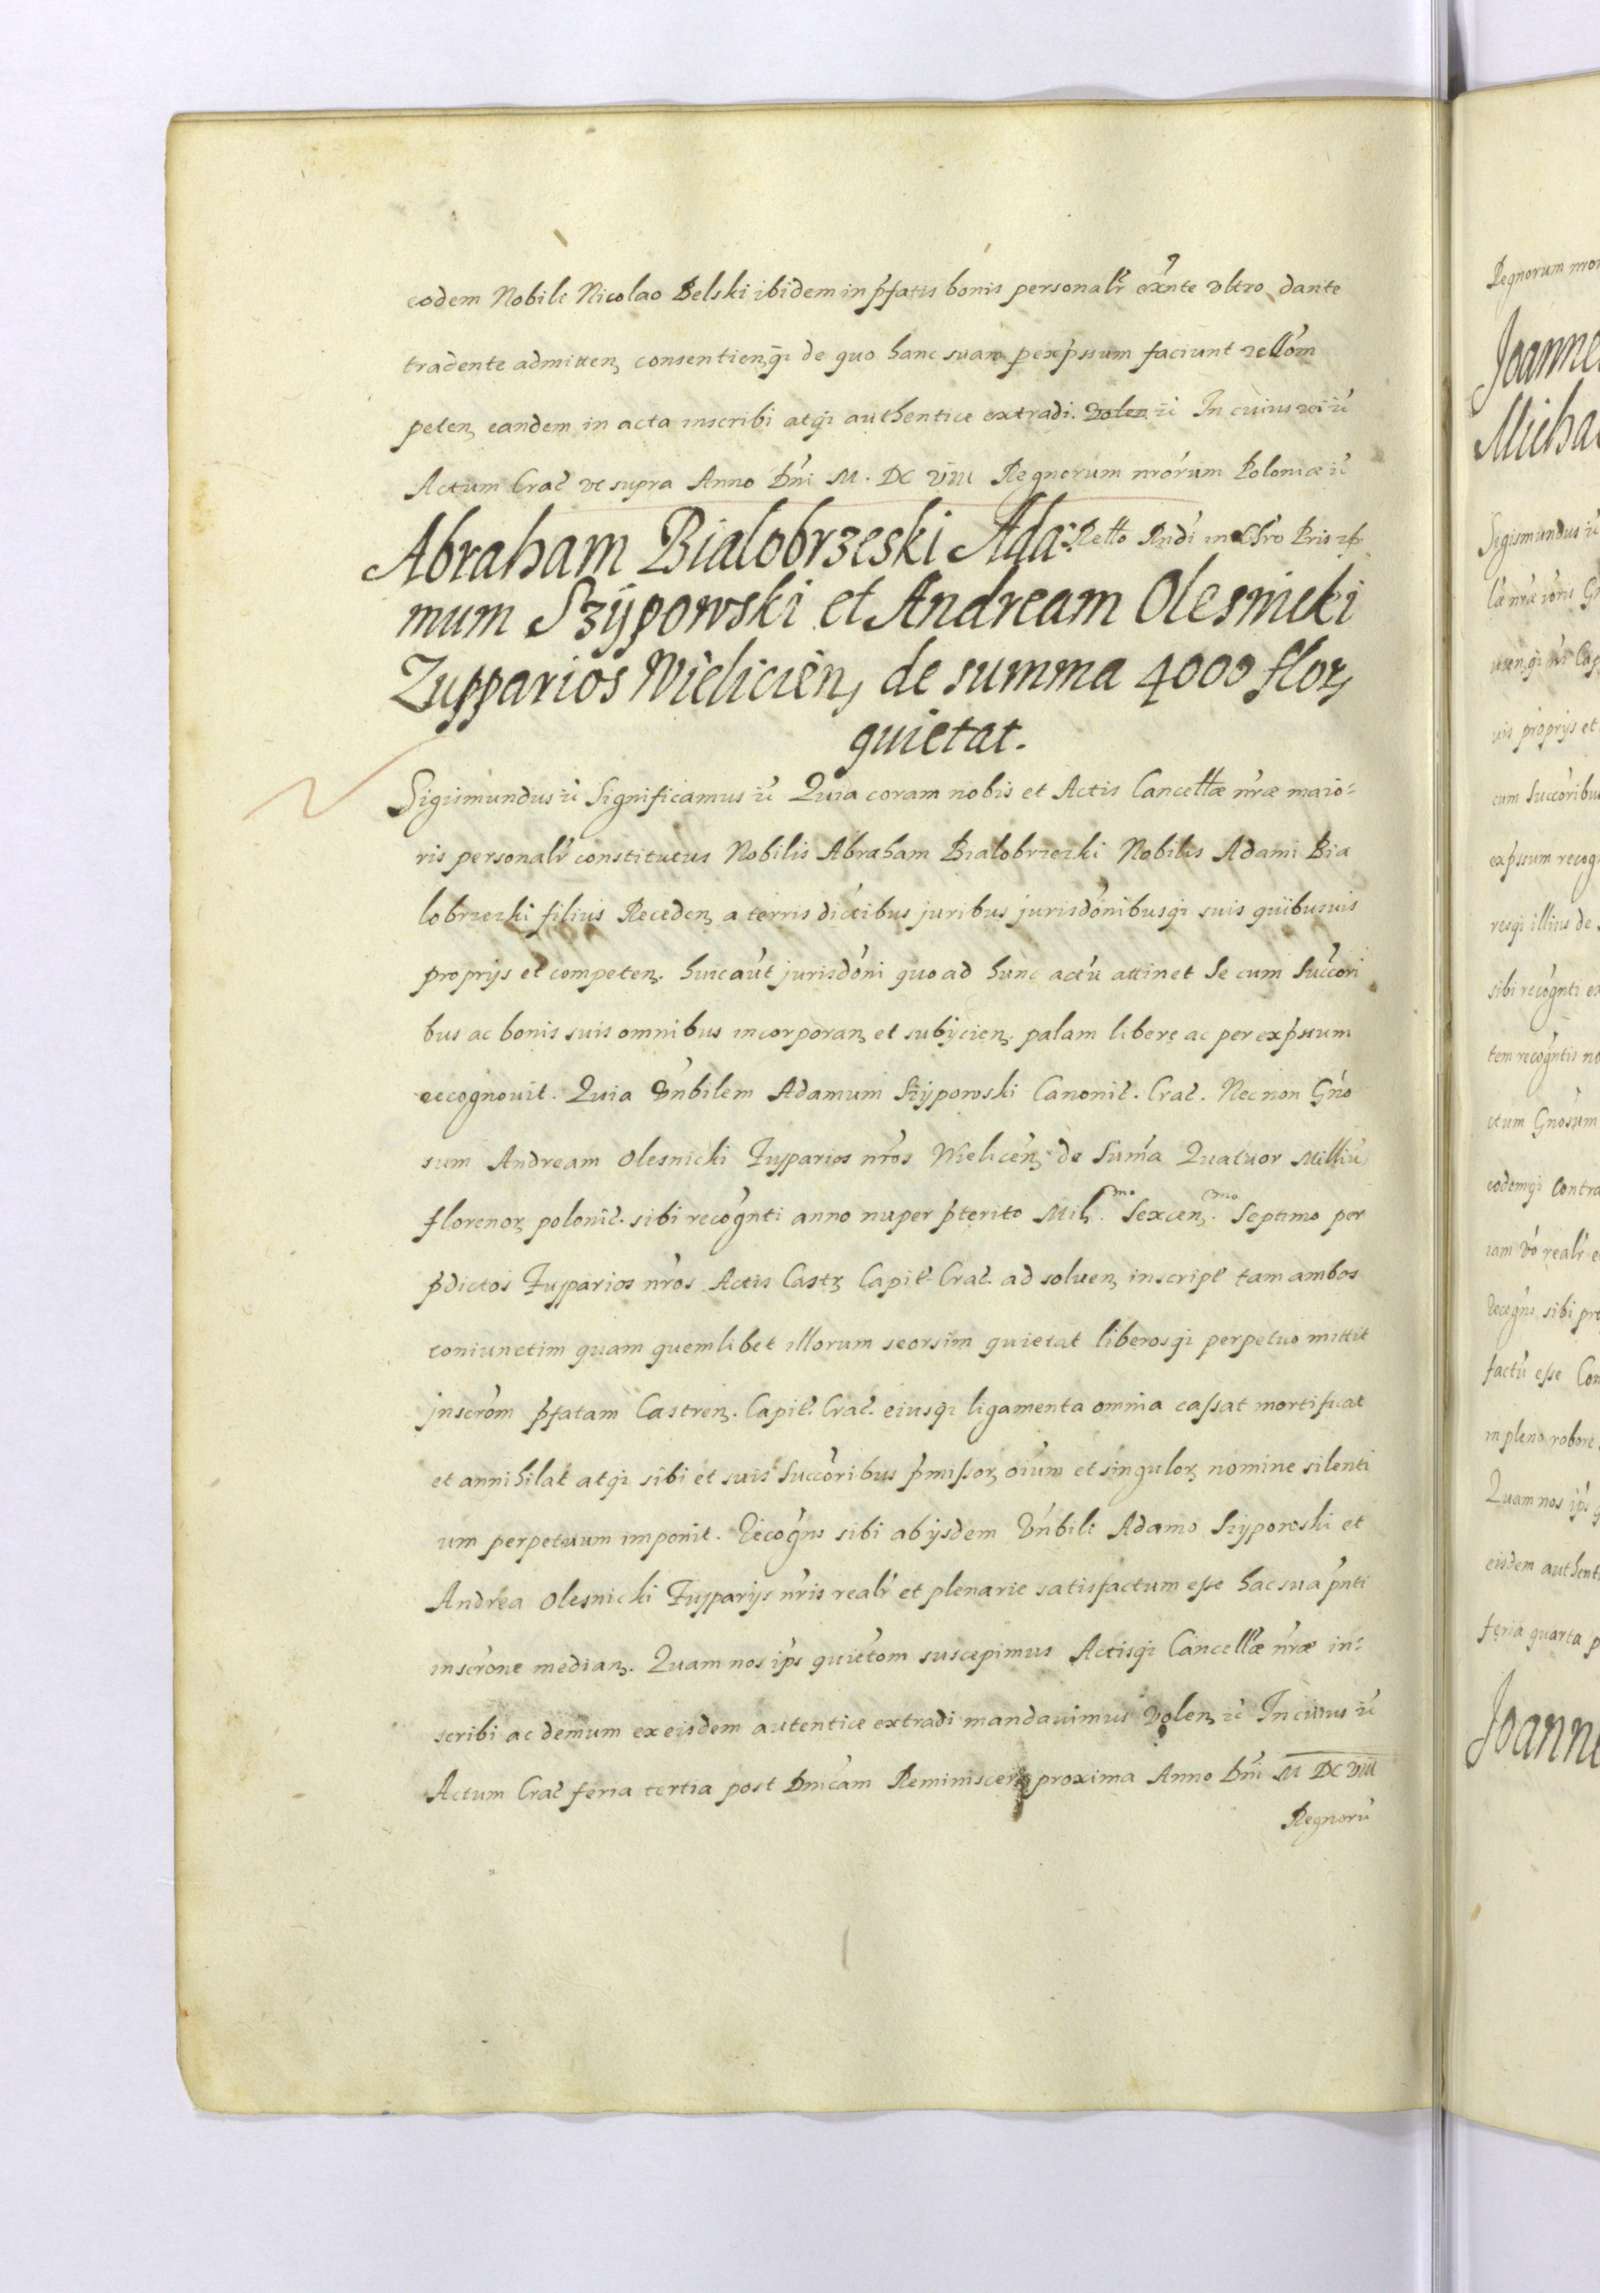 eodem Nobile Nicolao Belski ibidem in p̃fatis bonis personalr̃ exñte vltro dante
tradente admitten, consentien,q̃ de quo hanc suam p exp̃ssum faciunt rellõm
peten, eandem in acta inscribi atq̃ authentice extradi. Volen ĩc In cuius rei ĩc
Actum Crac̃ vt supra Anno Dni M. DC VIII Regnorum nrõrum Poloniæ ĩc
Abraham Bialobrzeski Ada: Retto Rndi
mum Szÿpowski et Andream Olesnicki
Zupparios Wielicien, de summa 4000 flor,
quietat.
Sigismundus ĩc Significamus ĩc Quia coram nobis et Actis Cancellæ nr̃æ maio=
ris personalr̃ constitutus Nobilis Abraham Bialobrzezki Nobilis Adami Bia
lobrzezki filius Receden, a terris districtibus juribus jurisdõnibusq̃ suis quibusuis
proprijs et competen. huic aut̃ jurisdõni quo ad hunc actũ attinet Se cum Succõri
bus ac bonis suis omnibus incorporan, et subÿcien, palam libere ac per exp̃ssum
recognouit. Quia Vñbilem Adamum Szÿpowski Canonic̃. Crac̃. Nec non Gño
sum Andream Olesnicki Zupparios nr̃os Wielicen̄, de Sum̃a Quatuor Milliũ
florenor, polonic̃. sibi recog̃nti anno nuper p̃terito Mil,mo. Sexcen,mo. Septimo per
p̃dictos Zupparios nr̃os Actis Castr, Capit̃. Crac̃. ad soluen, inscript̃ tam ambos
coniunctim quam quemlibet illorum seorsim quietat liberosq̃ perpetuo mittit
jnscrõm p̃fatam Castren,. Capit̃. Crac̃. eiusq̃ ligamenta omnia cassat mortificat
et annihilat atq̃ sibi et suis Succõribus p̃missor, oium et singulor, nomine silenti
um perpetuum imponit. Recog̃ns sibi ab ÿsdem Vñbili Adamo Szÿpowski et
Andrea Olesnicki Zupparÿs nr̃is realr̃ et plenarie satisfactum esse hac sua p̃nti
inscrõne median,. Quam nos ip̃s quietõm suscepimus Actisq̃ Cancellæ nr̃æ in=
scribi ac demum ex eisdem autentice extradi mandauimus Volen, ĩc In cuius ĩc
Actum Crac̃ feria tertia post Dnicam Reminiscere proxima Anno Dni M DC VIII
Regnorũ